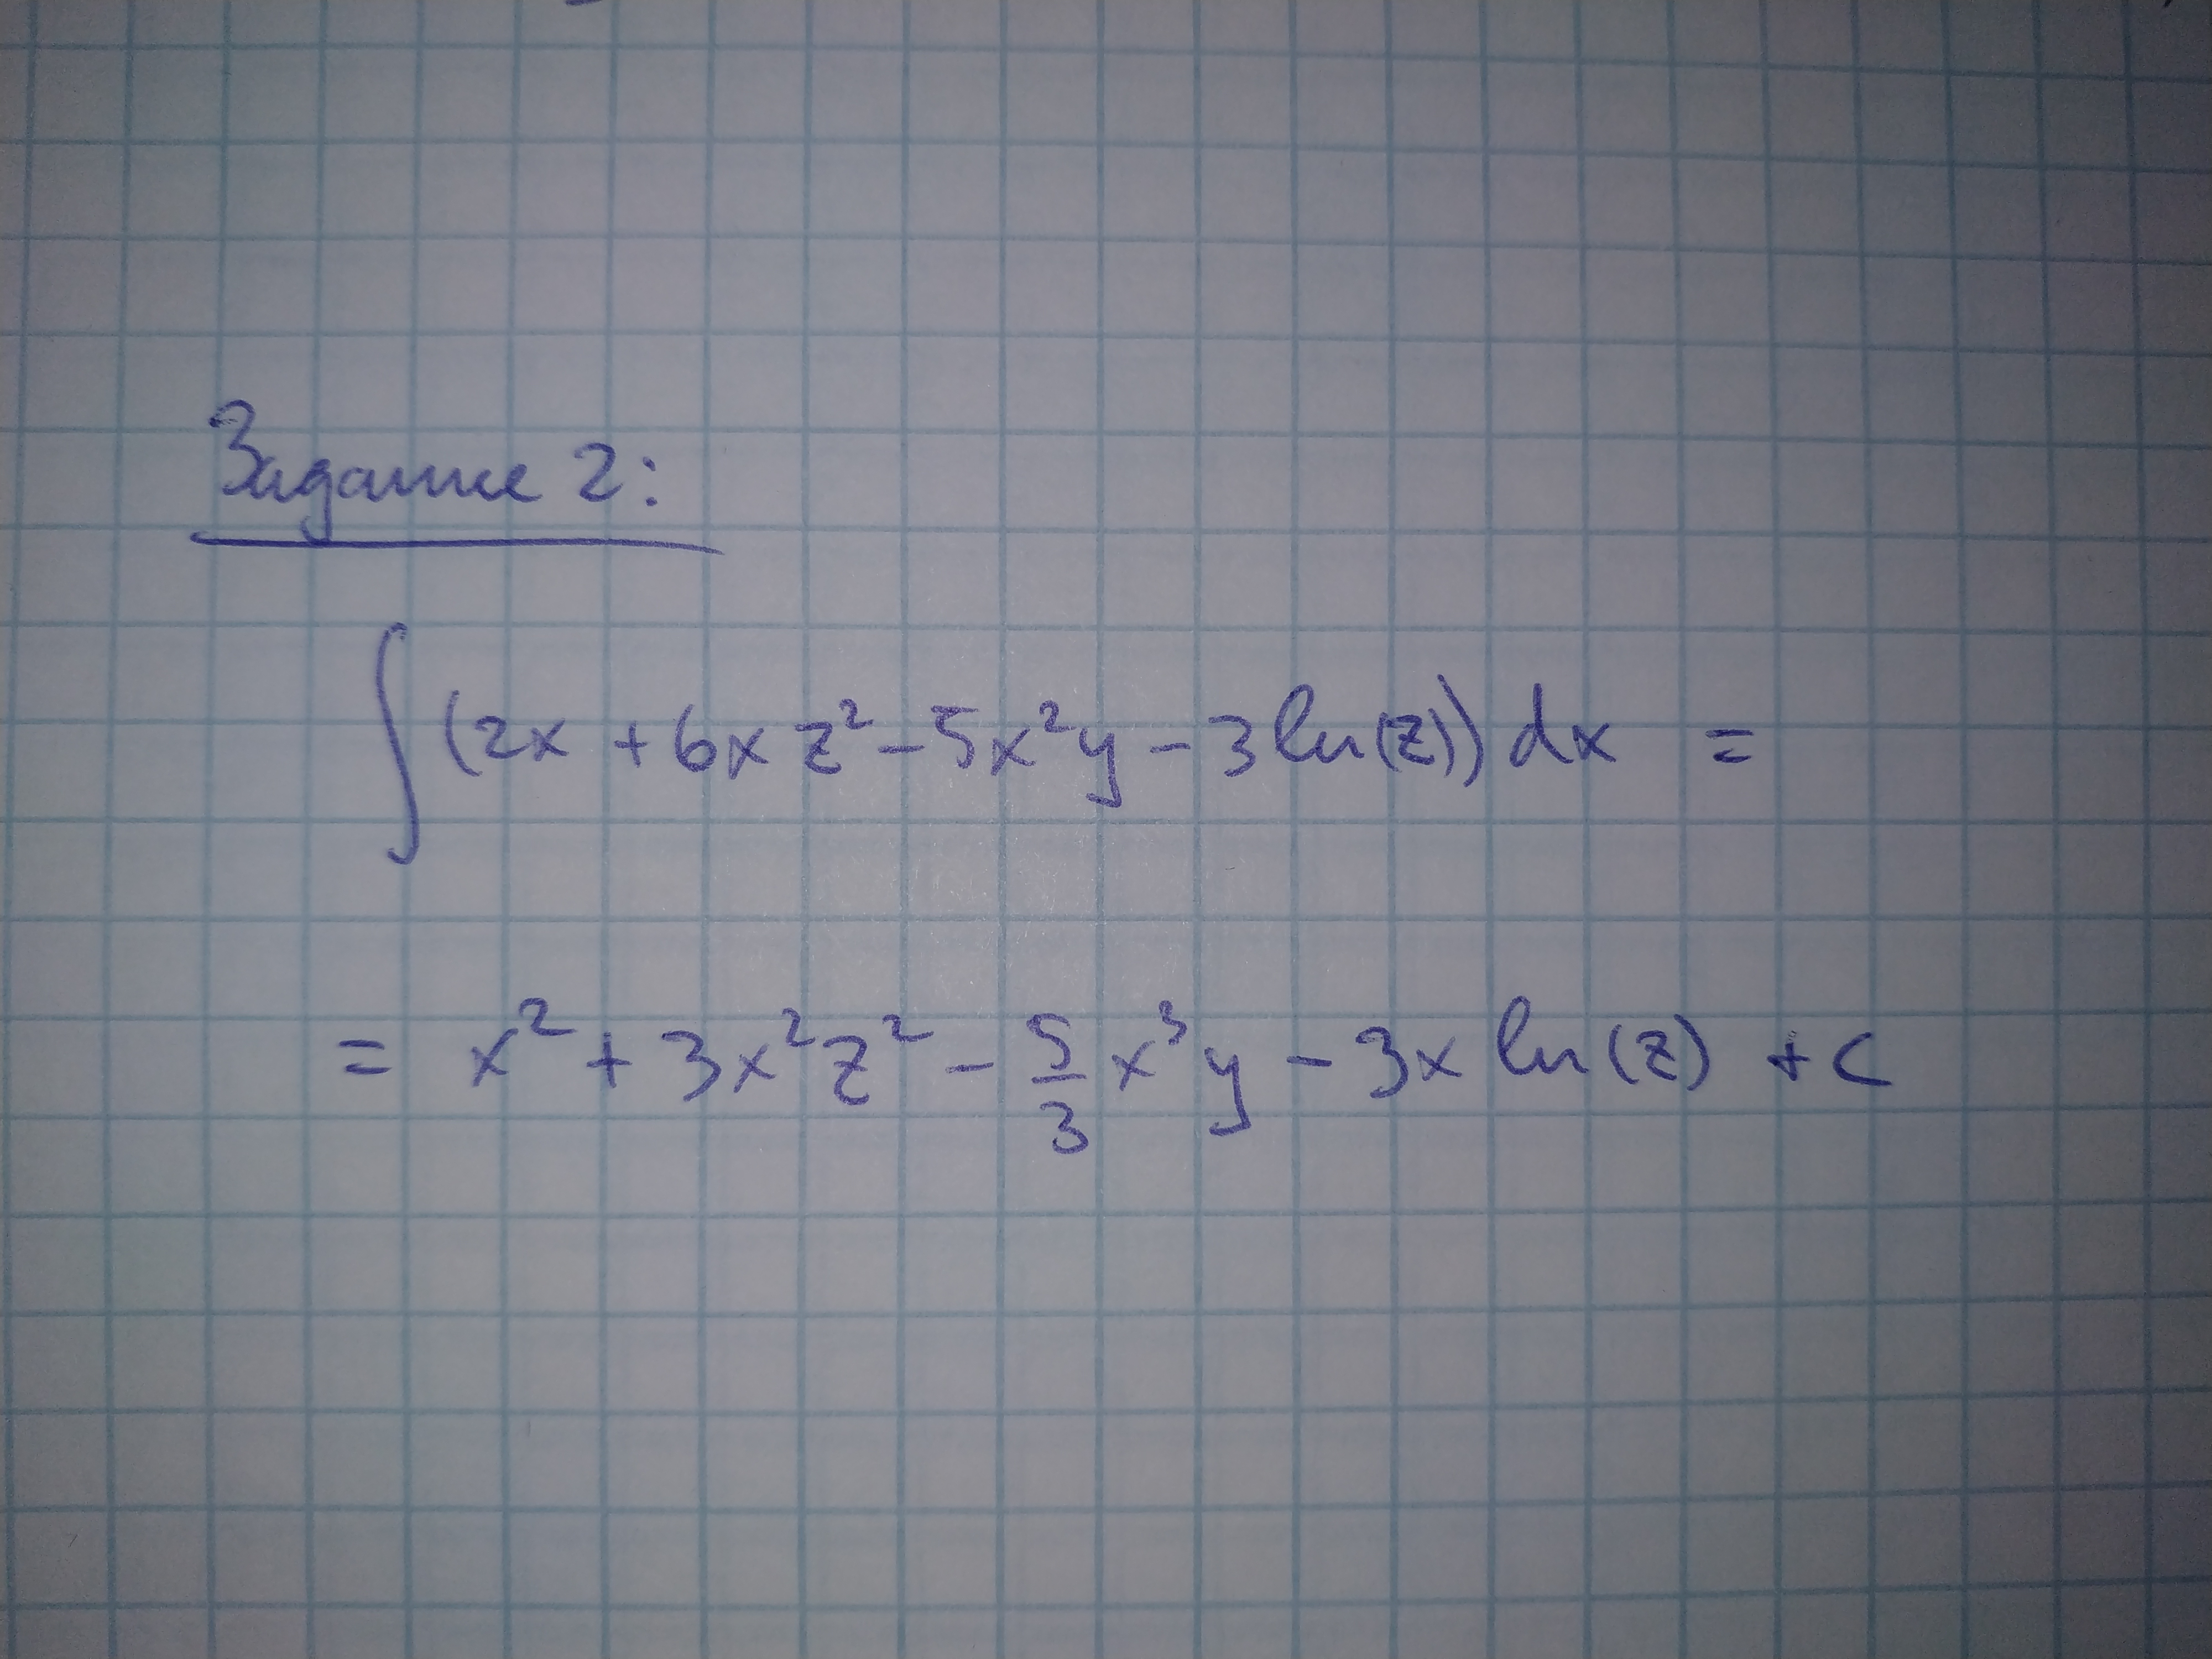 Задание 2:
∫(2x + 6xz² - 5x²y - 3ln(z))dx =
= x² + 3x²z² - 5/3 x³y - 3x ln(z) + c